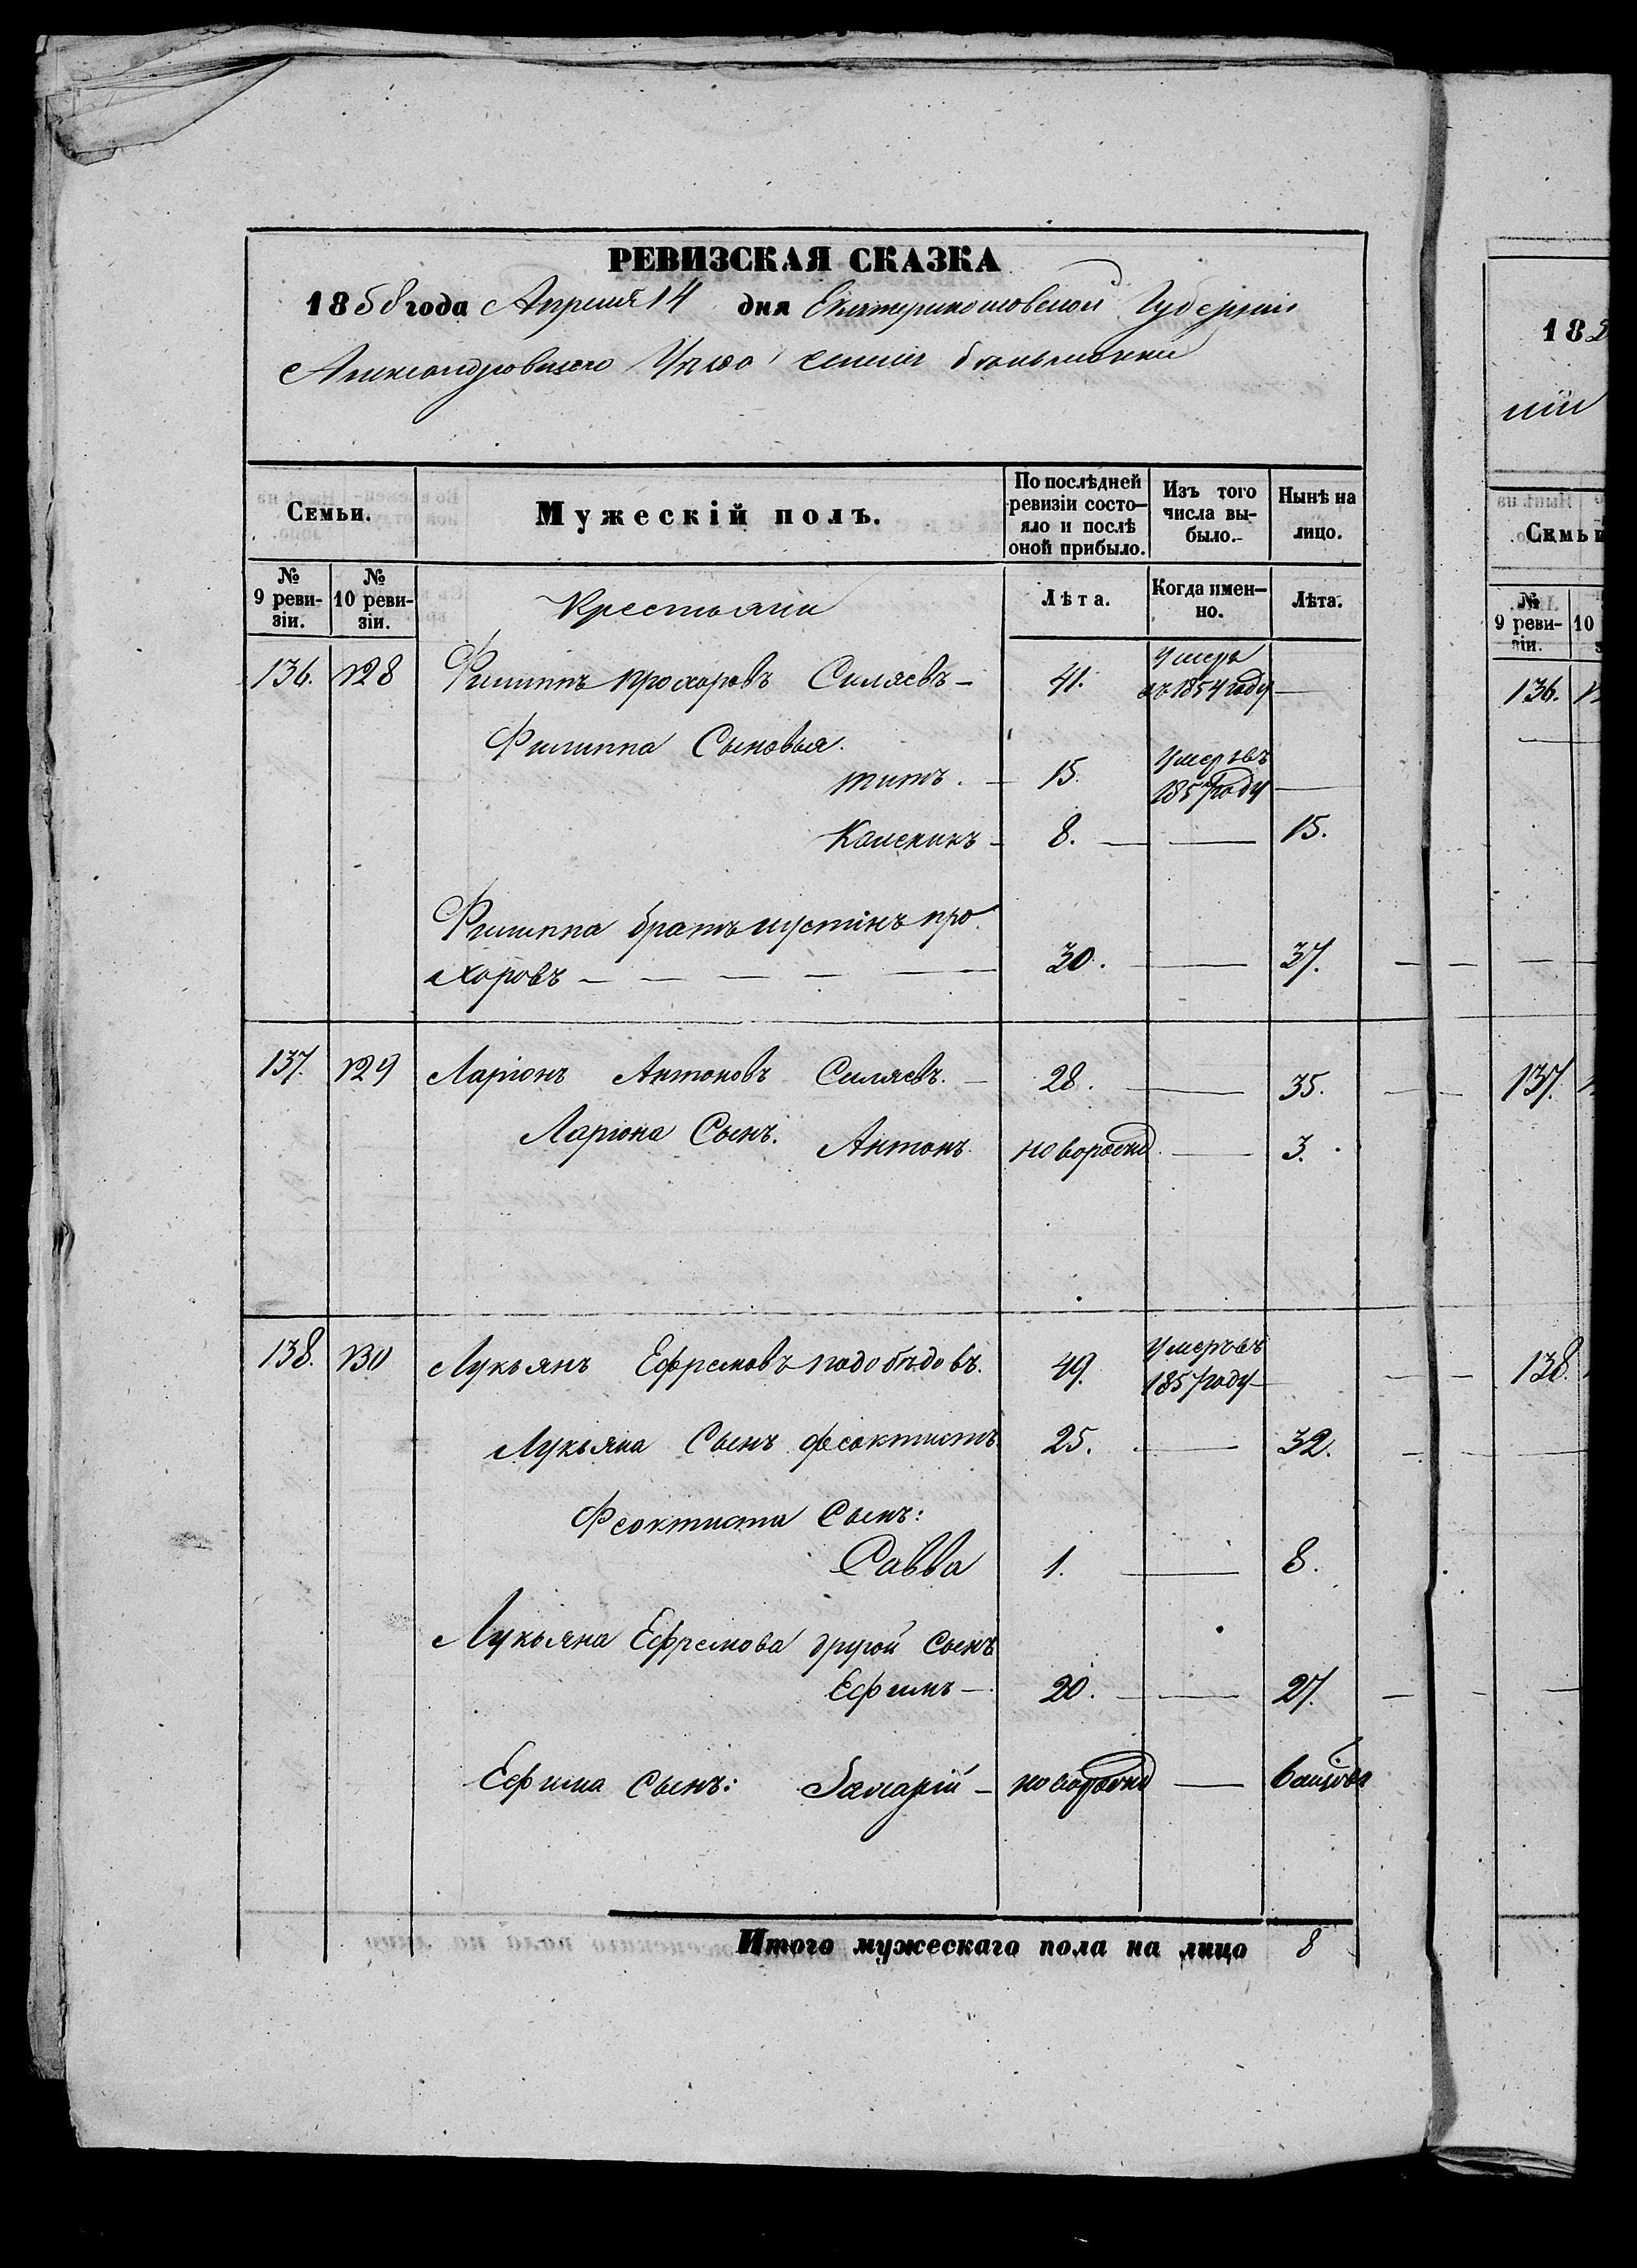 РЕВИЗСКАЯ СКАЗКА
1858 года Апреля 14 дня Екатеринославской Губерніи
Александровскаго Уѣзда селенія
Семьи.
Мужескій полъ.
По послѣдней ревизіи состо-
яло и послѣ
оной прибыло.
Изъ того
числа вы-
было.
Нынѣ на
лицо.
№
9 реви-
зіи.
№
10 реви-
зіи.
Крестьяни
Лѣта.
Когда имен-
но.
Лѣта.
136. 128 Филиппъ Прохоровъ Силяевъ - 41. Умеръ
въ 1854 году
Филиппа Сыновья.
Титъ. - 15. Умеръ въ
1857 году
8. 15.
Филиппа братъ Иустинъ Про-
хоровъ 30. 37.
137. 129 Ларіонъ Антоновъ Силяевъ. 28. 35.
Ларіона Сынъ. Антонъ новорожд 3.
138. 130 Лукьянъ Ефремовъ Подобѣдовъ. 49. Умеръ въ
1857 году
Лукьяна Сынъ Феоктистъ 25. 32.
Феоктиста Сынъ:
Савва 1. 8.
Лукьяна Ефремова другой Сынъ
Ефимъ - 20. 27.
Ефима Сынъ: новорожд
Итого мужескаго пола на лицо 8
182
ніи
Семьи
№
9 реви-
зіи.
10
136.
137.
138.